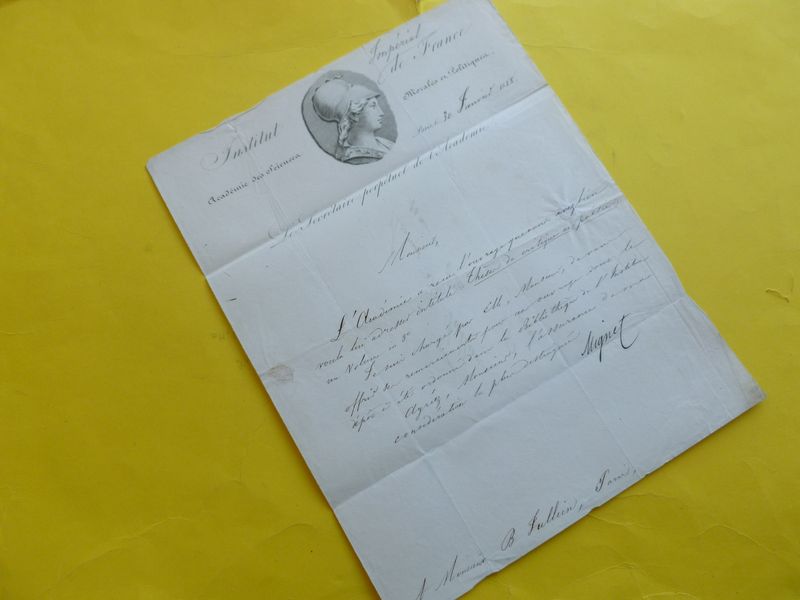 Institut Impérial de France
Académie des Sciences Morales et Politiques.
Paris le 30 Janvier 18
Le Secrétaire perpétuel de l'Académie
Monsieur,
L'Académie a reçu l'ouvrage que vous avez bien
voulu lui adresser intitulé Thèse de critique et
un Volume in 8o
Je suis chargé par Elle, Monsieur, de vous
offrir de remerciements pour cet ouvrage dont le
dépôt a été ordonné dans la Bibliothèque de l'Institut
Agréez, Monsieur, l'assurance de ma
considération la plus distinguée
Mignet
A Monsieur B Jullien, Paris,